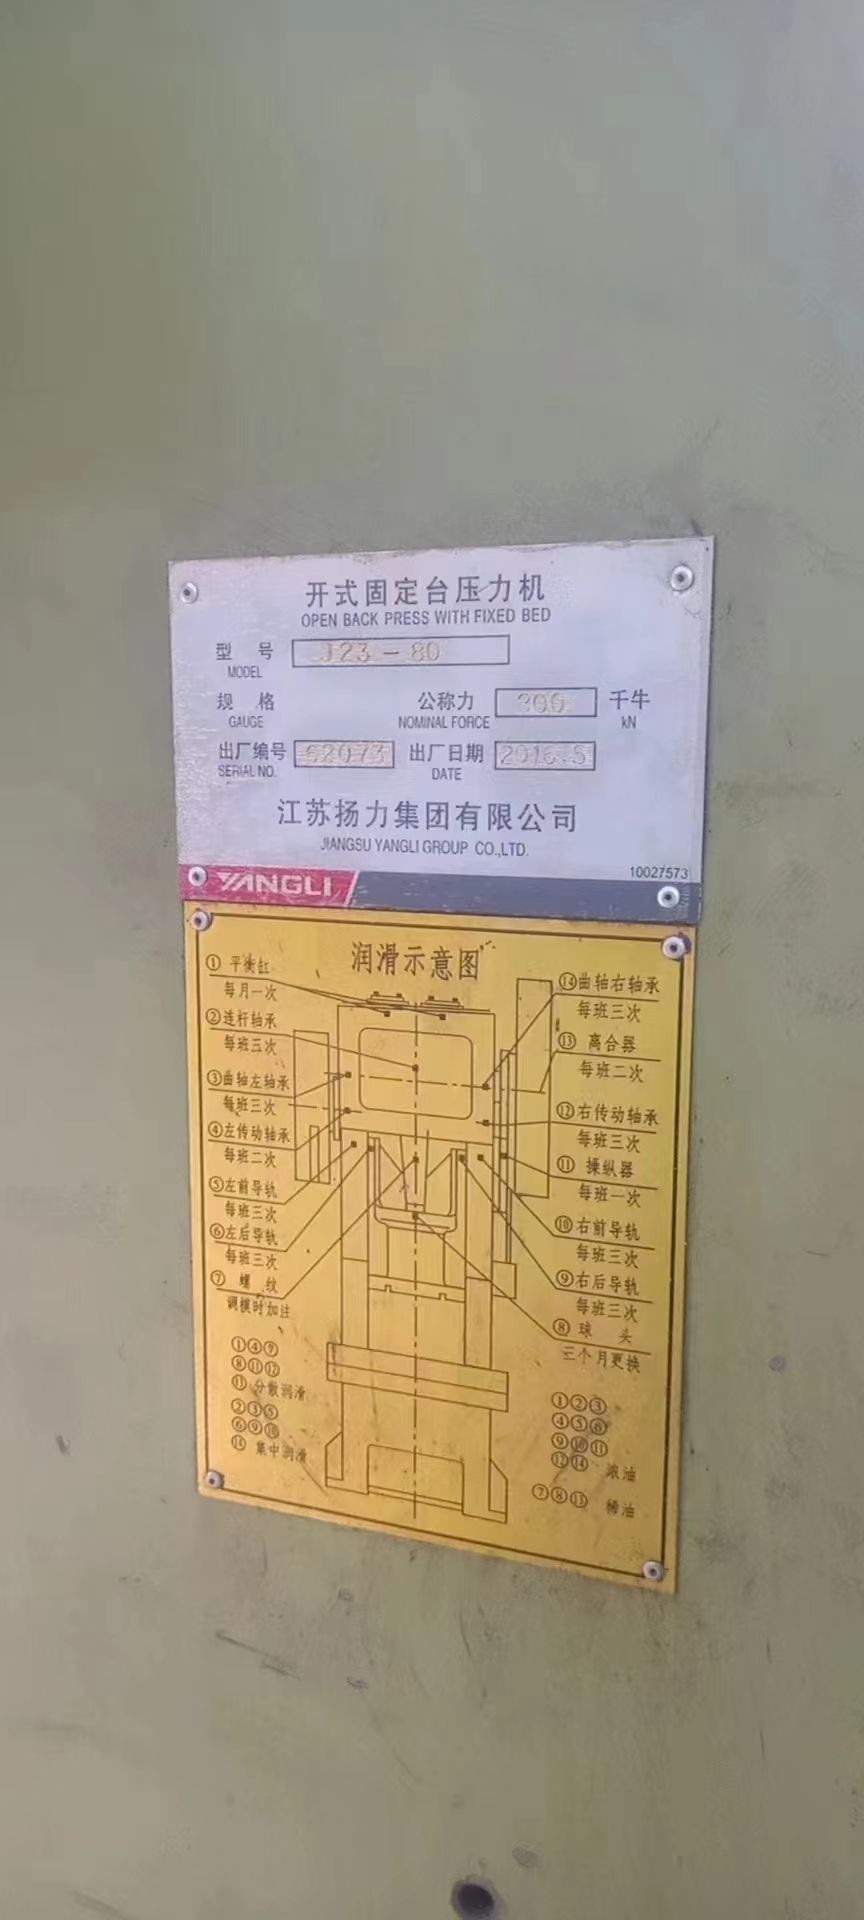 开式固定台压力机
OPEN BACK PRESS WITH FIXED BED
型 号 J23-80
MODEL
规 格 公称力 800 千牛
GAUGE NOMINAL FORCE kN
出厂编号 62073 出厂日期 2016.5
SERIAL NO. DATE
江苏扬力集团有限公司
JIANGSU YANGLI GROUP CO.,LTD.
10027573
YANGLI
润滑示意图
① 平衡缸
每月一次
② 连杆轴承
每班三次
③ 曲轴左轴承
每班三次
④ 左传动轴承
每班二次
⑤ 左前导轨
每班三次
⑥ 左后导轨
每班三次
⑦ 螺 纹
调模时加注
⑭ 曲轴右轴承
每班三次
⑬ 离合器
每班二次
⑫ 右传动轴承
每班三次
⑪ 操纵器
每班一次
⑩ 右前导轨
每班三次
⑨ 右后导轨
每班三次
⑧ 球 头
三个月更换
①④⑦
⑧⑪⑫
⑬ 分散润滑
②③⑤
⑥⑨⑩
⑭ 集中润滑
①②③
④⑤⑥
⑨⑩⑪
⑫⑭ 浓油
⑦⑧⑬ 稀油